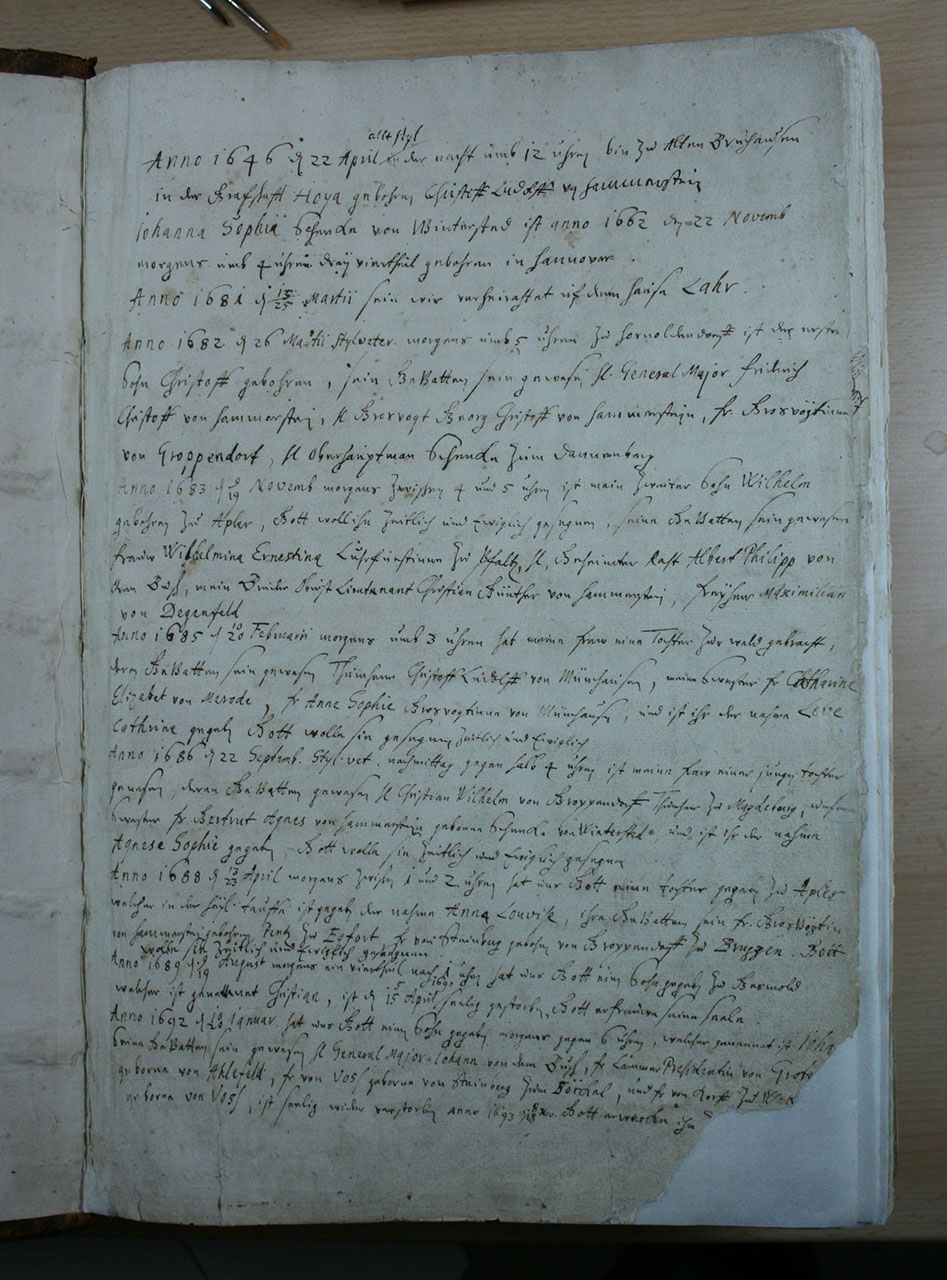 alt styl
Anno 1646 d 22 April in der nacht umb 12 uhren bin zu Alten Bruchausen
in der Grafschafft Hoya gebohren Christoff Ludolff von Hammerstein
Johanna Sophia Schencke von Wintersted ist anno 1662 den 22 Novemb
morgens umb 4 uhren drey viertheil gebohren in Hannover.
Anno 1681 d 15/25 Martii sein wir verheirahtet uf dem hause Lahr.
Anno 1682 d 26 Martii Styl veter. morgens umb 5 uhren zu Hornoldendorff ist der erste
Sohn Christoff gebohren, sein Gevattern sein gewesen General Major Friderich
Christoff von Hammerstein, Grosvogt Georg Christoff von Hammerstein, fr. Grosvögtinne
von Groppendorf, Oberhauptman Schencke zum Dannenberg
Anno 1683 d 9/19 Novemb morgens zwischen 4 und 5 uhren ist mein zweiter Sohn Wilhelm
gebohren zu Apler, Gott woll ihn zeitlich und Ewiglich gesegnen, seine Gevattern sein gewesen
fraw Wilhelmina Ernestina Churfürstinne zu Pfaltz, Geheimter Raht Albert Philipp von
dem Busch, mein Bruder Obrist Lieutenant Christian Günther von Hammerstein, Freyherr Maximilian
von Degenfeld
Anno 1685 d 10/20 Februarii morgens umb 3 uhren hat meine fraw eine Tochter zur weld gebracht,
deren Gevattern sein gewesen Thumherr Christoff Ludolff von Münchausen, meine swester fr. Catharine
Elizabet von Merode, fr Anne Sophie Grosvogtinne von Münchausen, und ist ihr der nahme Lene
Cathrina gegeben Gott wolle sie gesegnen zeitlich und Ewiglich
Anno 1686 d 22 Septemb. Styl. vet. nachmittag gegen halb 4 uhren ist meine fraw einer jungen tochter
genesen, deren Gevattern gewesen Christian Wilhelm von Groppendorff Thumherr zu Magdeburg,
Swester fr Gertrut Agnes von Hammerstein geborne Schencke von Wintersted und ist ihr der nahme
Agnese Sophie gegeben, Gott wolle sie zeitlich und Ewiglich gesegnen
Anno 1688 d 13/23 April morgens zwischen 1 und 2 uhren hat uns Gott eine tochter gegeben zu Apler
welcher in der heil. tauffe ist gegeben der nahme Anna Louvise, ihre Gevattern sein fr. Grosvögtin
von Hammerstein gebohrne Pentz zu Egfort, fr von Steinberg gebohrn von Groppendorff zu Bruggen. Gott
wolle sie zeitlich und Ewiglich gesegnen
Anno 1689 d 9/19 August morgens ein viertheil nach 1 uhren hat uns Gott einen Sohn gegeben zu Gesmold
welcher ist genennet Christian, ist d 5/15 April 1690 seelig gestorben, Gott erfreuwe seine seele.
Anno 1692 d 10/20 Januar. hat uns Gott einen Sohn gegeben morgens gegen 6 uhren, welcher genennet ist Joha
Seine Gevattern sein gewesen General Major Johann von dem Busch, fr Cammer Presidentin von Grote
geborne von Ahlefeld, fr von Voss geborne von Steinberg zum Börckel, und fr von Korff zu
geborne von Voss, ist seelig wider verstorben anno 1693 Gott erwecke ihn